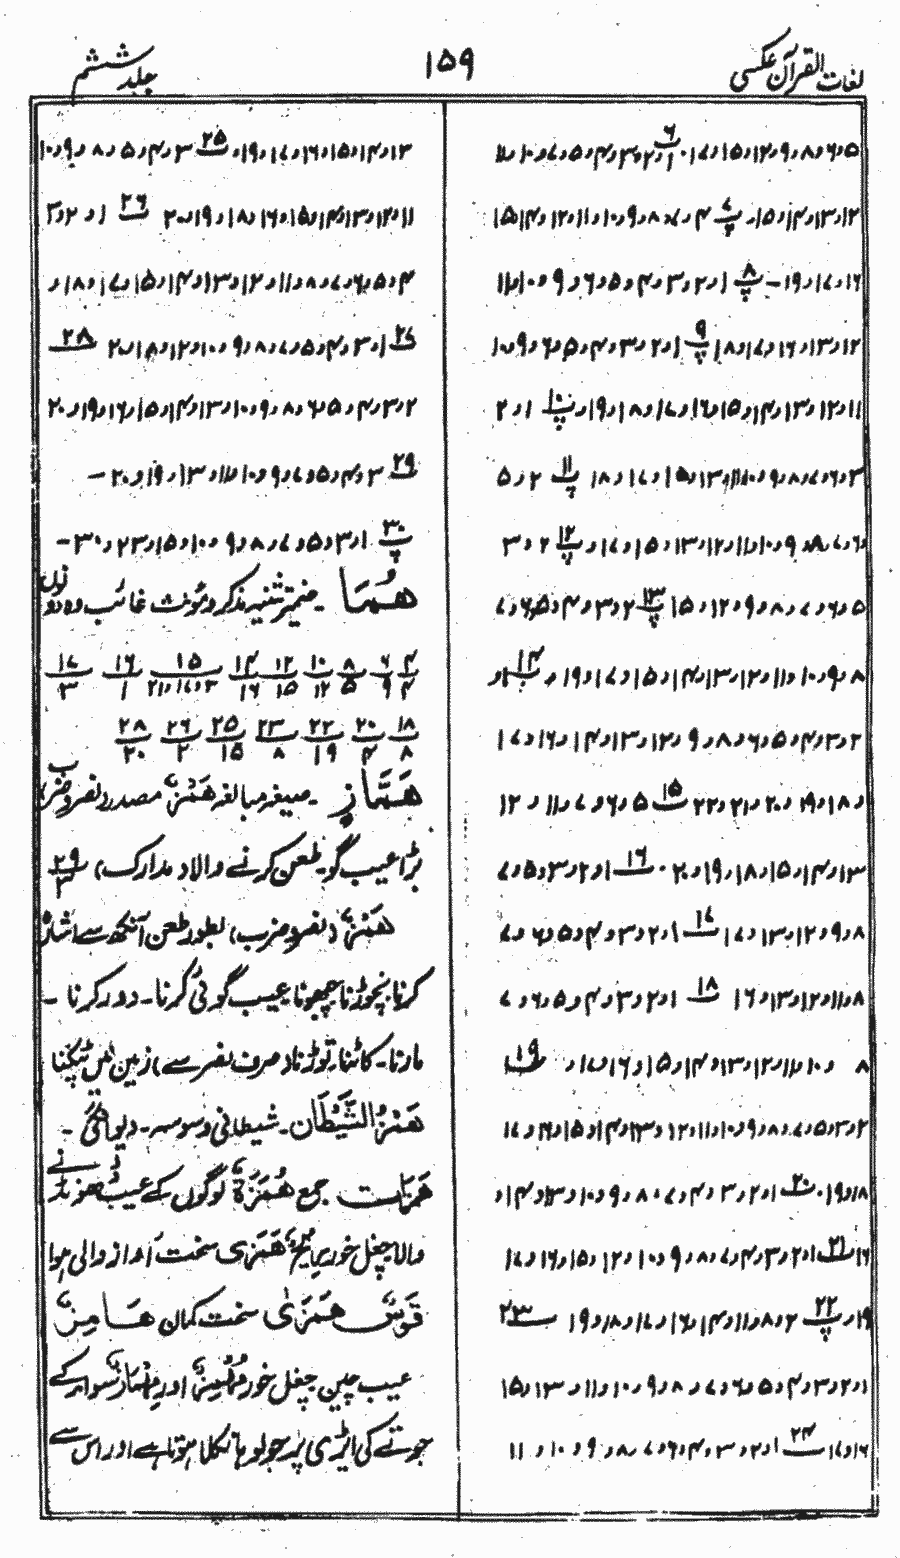 لغات القرآن عکسی ۱۵۹ جلد ششم
۵و۶و۸و۹و۱۲و۱۵و۱۷ ۶ ۱و۲و۳و۴و۵و۷و۱۰و۱۱
۱۲و۱۳و۱۴و۱۵و ۷/۲ ۴و۷و۸و۹و۱۰و۱۱و۱۲و۱۴و۱۵
۱۶و۱۷و۱۹- ۸/پ ۱و۲و۳و۴و۵و۶و۹و۱۰و۱۱
۱۲و۱۳و۱۶و۱۷و۱۸ ۹/پ ۱و۲و۳و۴و۵و۶و۹و۱۰
۱۱و۱۲و۱۳و۱۴و۱۵و۱۶و۱۷و۱۸و۱۹و ۱۰/پ ۱و۲
۳و۶و۷و۸و۹و۱۰و۱۱و۱۳و۱۵و۱۷و۱۸ ۱۱/پ ۲و۵
و۶و۷و۸و۹و۱۰و۱۱و۱۲و۱۳و۱۵و۱۷و ۱۲/پ ۲و۳
۵و۶و۷و۸و۹و۱۲و۱۵ ۱۳/پ ۲و۳و۴و۵و۶و۷
۸و۹و۱۰و۱۱و۱۲و۱۳و۱۴و۱۵و۱۷و۱۹و ۱۴ ۱و
۲و۳و۴و۵و۶و۸و۹و۱۲و۱۳و۱۴و۱۶و۱۷
و۱۸و۱۹و۲۰و۲۱و۲۲ ۱۵ ۵و۶و۷و۱۱و۱۲
۱۳و۱۴و۱۵و۱۸و۱۹و۲۰ ۱۶ ۱و۲و۳و۵و۷
۸و۹و۱۲و۱۳و۱۷ ۱۷ ۱و۲و۳و۴و۵و۶و۷
۸و۱۱و۱۲و۱۳و۱۶ ۱۸ ۱و۲و۳و۴و۵و۶و۷
۸ و۱۰و۱۱و۱۲و۱۳و۱۴و۱۵و۱۶و۱۷و ۱۹
۲و۳و۵و۷و۸و۹و۱۰و۱۱و۱۲و۱۳و۱۴و۱۵و۱۶و۱۷
۱۸و۱۹ ۲۰ ۱و۲و۳و۴و۷و۸و۹و۱۰و۱۳و۱۴و
۱۶ ۲۱ ۱و۲و۳و۴و۷و۸و۹و۱۰و۱۲و۱۵و۱۶و۱۷
۱۹و ۲۲/پ ۲و۸و۱۱و۱۴و۱۶و۱۷و۱۸و۱۹ ۲۳
۱و۲و۳و۴و۵و۶و۷و۸و۹و۱۰و۱۱و۱۳و۱۵
۱۶و۱۷ ۲۴ ۱و۲و۳و۴و۶و۷و۸و۹و۱۰و۱۱
۱۳و۱۴و۱۵و۱۶و۱۷و۱۹و ۲۵ ۳و۴و۵و۸و۹و۱۰
۱۱و۱۲و۱۳و۱۴و۱۵و۱۶و۱۸و۱۹و۲۰ ۲۶ ۱و۲و۳
۴و۵و۶و۷و۸و۱۱و۱۲و۱۳و۱۴و۱۵و۱۷و۱۸و
۲۷ ۱و۳و۴و۵و۷و۸و۹و۱۰و۱۲و۱۸و۲۰ ۲۸
۲و۳و۴و۵و۶و۸و۹و۱۰و۱۳و۱۴و۱۵و۱۶و۱۹و۲۰
۲۹ ۳و۴و۵و۷و۹و۱۰و۱۱و۱۳و۱۹و۲۰-
۳۰/پ ۱و۳و۵و۷و۸و۹و۱۰و۱۵و۲۳و۳۰-
هُمَا- ضمیر تثنیہ مذکر و مؤنث غائب وہ دونوں
۴/۴ ۶/۹ ۸/۵ ۱۰/۱۲ ۱۲/۱۵ ۱۴/۱۶ ۱۵/۳و۷و۱۱و۲۱ ۱۶/۱ ۱۷/۳
۱۸/۸ ۲۰/۴ ۲۲/۱۹ ۲۳/۸ ۲۵/۱۵ ۲۶/۲ ۲۸/۲۰
هَمَّازٍ- صیغہ مبالغہ هَمْزٌ مصدر (نصر و ضرب)
بڑا عیب گو۔ طعن کرنے والا (مدارک) ۲۹/۳
هَمْزٌ (نصر و ضرب) بطور طعن آنکھ سے اشارہ
کرنا نچوڑنا چھونا عیب گوئی کرنا۔ دور کرنا-
مارنا۔ کاٹنا۔ توڑنا (صرف نصر سے) زمین پر ٹپکنا
هَمْزُ الشَّيْطَانِ۔ شیطانی وسوسہ۔ دیوانگی-
هَمَزَات جمع هُمَزَةٌ لوگوں کے عیب ڈھونڈنے
والا چغل خور رِیْحٌ هَمَزٰی سخت آواز والی ہوا
قَوْسٌ هَمَزٰی سخت کمان هَامِزٌ
عیب چین چغل خور مِهْمَزٌ اور مِهْمَازٌ سوار کے
جوتے کی ایڑی پر جو لوہا نکلا ہوتا ہے اور اس سے